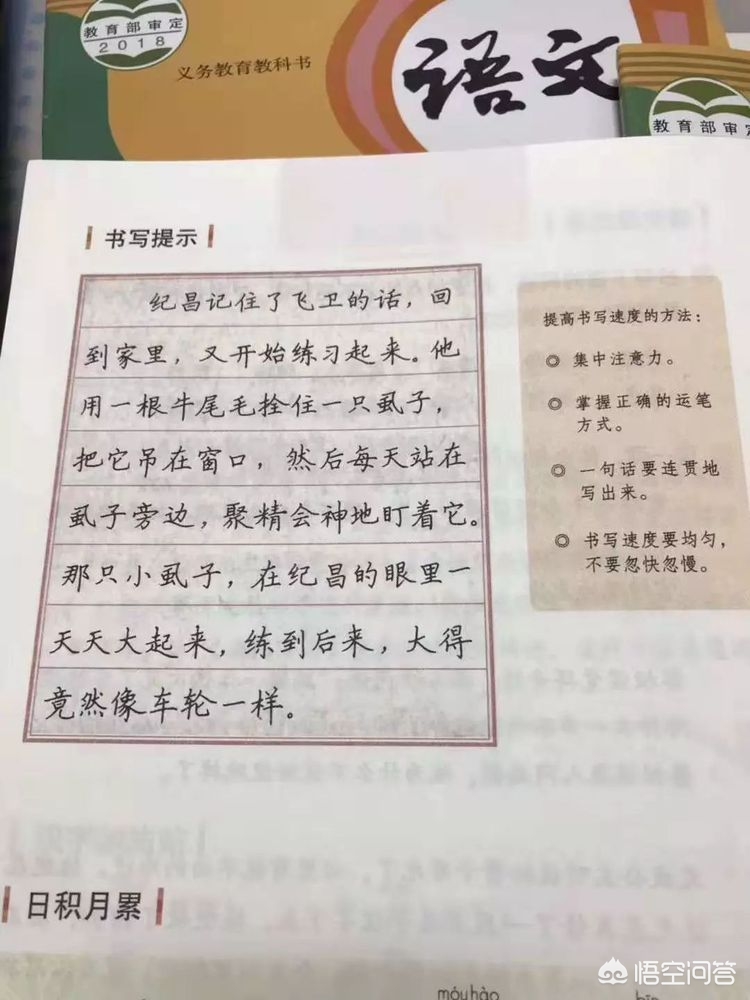 教育部审定
2018
义务教育教科书
语文
教育部审定
书写提示
纪昌记住了飞卫的话，回
到家里，又开始练习起来。他
用一根牛尾毛拴住一只虱子，
把它吊在窗口，然后每天站在
虱子旁边，聚精会神地盯着它。
那只小虱子，在纪昌的眼里一
天天大起来，练到后来，大得
竟然像车轮一样。
提高书写速度的方法：
◎ 集中注意力。
◎ 掌握正确的运笔
方式。
◎ 一句话要连贯地
写出来。
◎ 书写速度要均匀，
不要忽快忽慢。
日积月累
móu hào
悟空问答